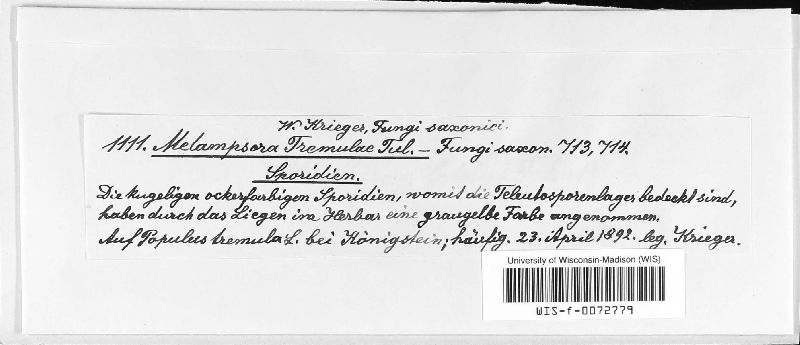 W. Krieger, Fungi saxonici.
1111. Melampsora Tremulae Tul. – Fungi saxon. 713, 714.
Sporidien.
Die kugeligen ockerfarbigen Sporidien, womit die Teleutosporenlager bedeckt sind,
haben durch das Liegen im Herbar eine graugelbe Farbe angenommen.
Auf Populus tremula L. bei Königstein; häufig. 23. April 1892. leg. Krieger.
University of Wisconsin-Madison (WIS)
WIS-f-0072779